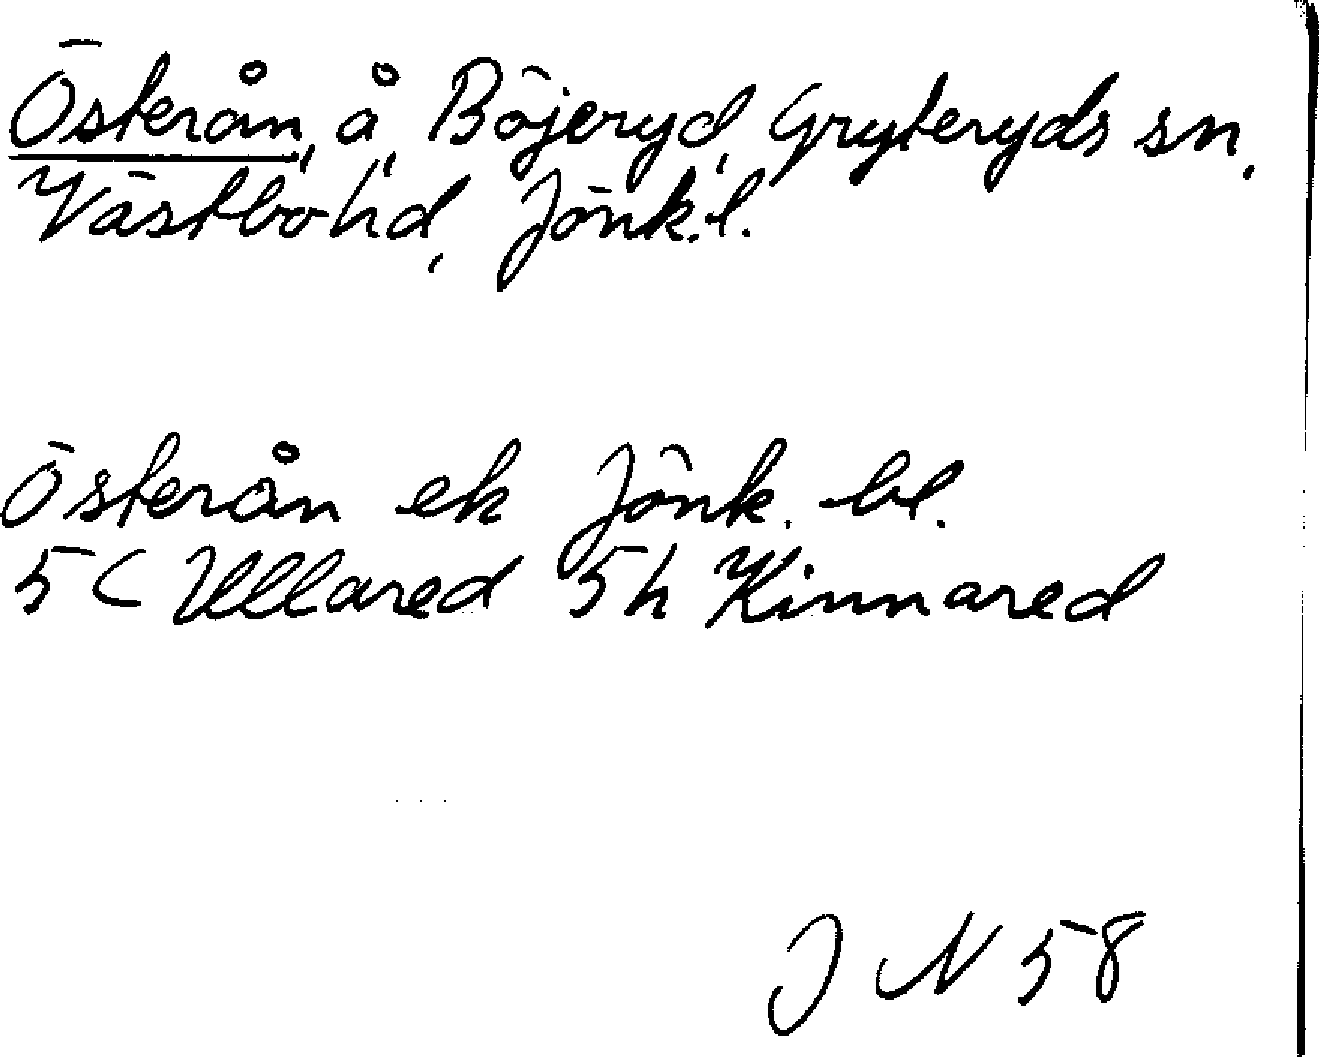 Österån, å, Böjeryd, Gryteryds sn,
Västbo hd, Jönk.l.
Österån ek Jönk. bl.
5C Ullared 5h Kinnared
J N 58